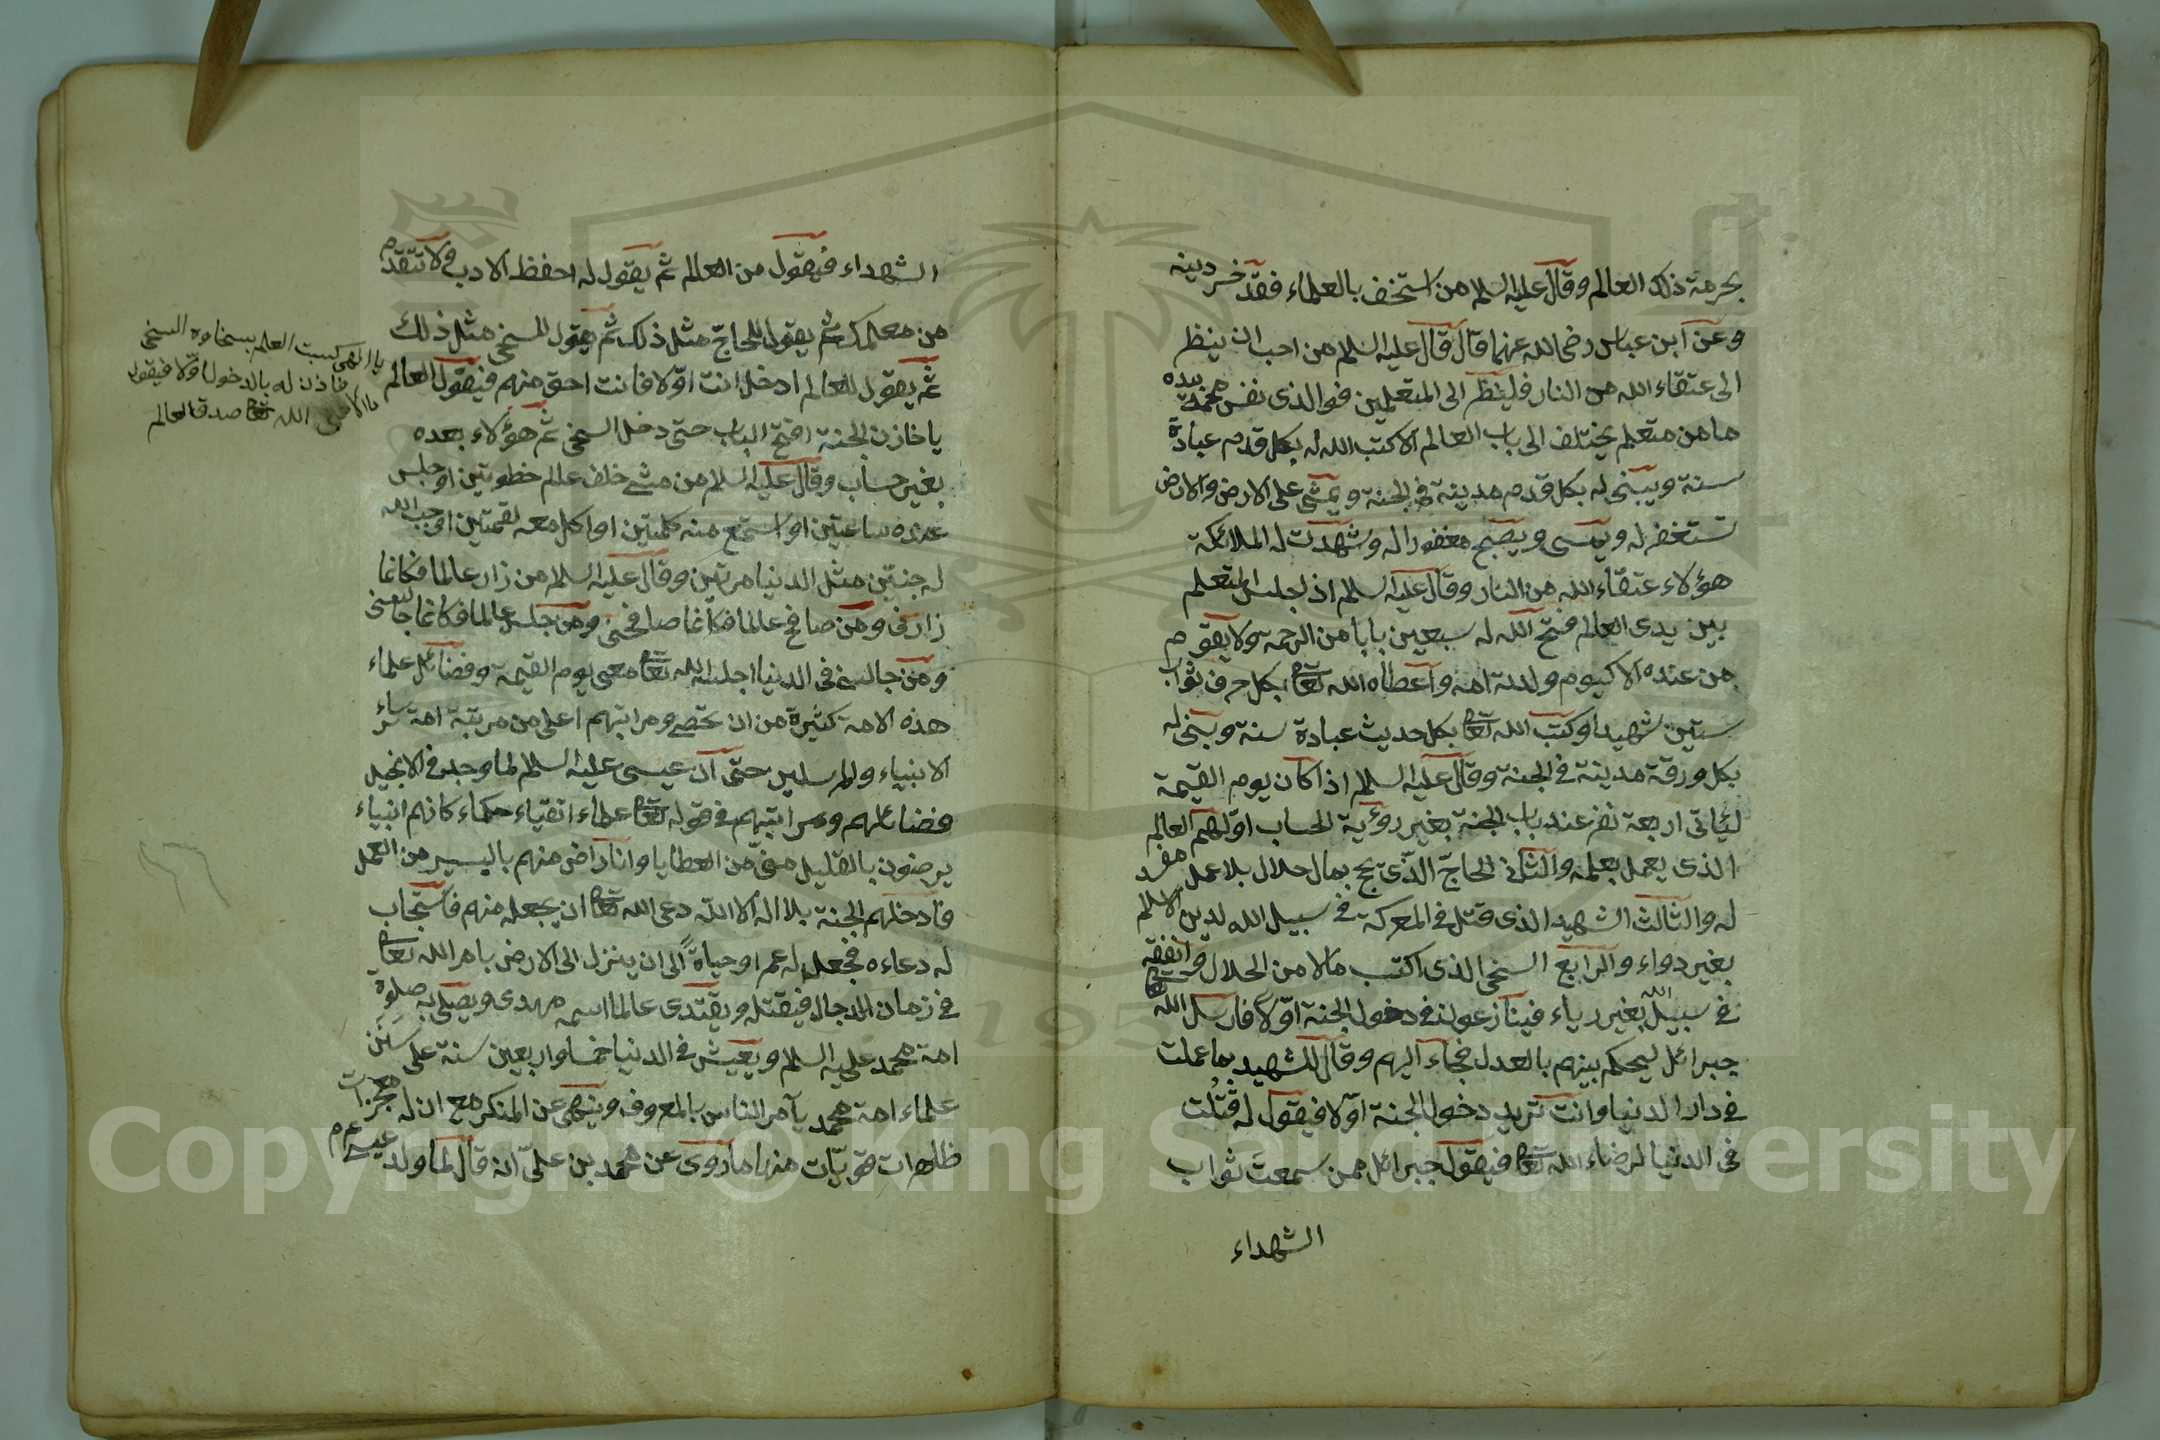 بحرمة ذلك العالم وقال عليه السلام من استخف بالعلماء فقد خسر دينه
وعن ابن عباس رضى الله عنهما قال قال عليه السلام من احب ان ينظر
الى عتقاء الله من النار فلينظر الى المتعلمين فوالذى نفس محمد بيده
ما من متعلم يختلف الى باب العالم الا كتب الله له بكل قدم عبادة
سنة ويبنى له بكل قدم مدينة فى الجنة ويمشى على الارض والارض
تستغفر له ويمسى ويصبح مغفورا له وشهدت له الملائكة
هؤلاء عتقاء الله من النار وقال عليه السلام اذ لجلس المتعلم
بين يدى العالم فتح الله له سبعين بابا من الرحمة ولا يقوم
من عنده الا كيوم ولدته امه واعطاه الله تعا بكل حرف ثواب
ستين شهيدا وكتب الله تعا بكل حديث عبادة سنة وبنى له
بكل ورقة مدينة فى الجنة وقال عليه السلام اذا كان يوم القيمة
ليأتى اربعة نفر عند باب الجنة بغير رؤية الحساب اولهم العالم
الذى يعمل بعلمه والثانى الحاج الذى حج بمال حلال بلا عمل مفسد
له والثالث الشهيد الذى قتل فى المعركة فى سبيل الله لدين الاسلام
بغير دواء والرابع السخى الذى اكتب مالا من الحلال وانفقه
فى سبيل الله بغير رياء فينازعون فى دخول الجنة اولا فارسل الله تعا
جبرائل ليحكم بينهم بالعدل فجاء اليهم وقال للشهيد بما عملت
فى دار الدنيا وانت تريد دخول الجنة اولا فيقول له قتلت
فى الدنيا لرضاء الله تعا فيقول جبرائل ممن سمعت ثواب
الشهداء
الشهداء فيقول من العالم ثم يقول له احفظ الادب فى لا تتقدم
من معلمك ثم يقول للحاج مثل ذلك ثم يقول للسخى مثل ذلك
ثم يقول للعالم ادخل انت اولا فانت احق منهم فيقول العالم
يا خازن الجنة افتح الباب حتى دخل السخى ثم هؤلاء بعده
بغير حساب وقال عليه السلام من مشى خلف عالم خطوتين او جلس
عنده ساعتين او استمع منه كلمتين او اكل معه لقمتين اوجب الله
له جنتين مثل الدنيا مرتين وقال عليه السلام من زار عالما فكانما
زارنى ومن صافح عالما فكانما صافحنى ومن جلس عالما فكانما جالسنى
ومن جالسنى فى الدنيا اجلسه الله تعا معى يوم القيمة وفضائل علماء
هذه الامة كثيرة من ان تحصى ومراتبهم اعلى من مرتبة امة سائر
الانبياء والمرسلين حتى ان عيسى عليه السلام لما وجد فى الانجيل
فضائلهم ومراتبهم فى قوله تعا علماء اتقياء حكماء كانهم انبياء
يرضون بالقليل منى من العطايا وانا راض منهم باليسير من العمل
فادخلهم الجنة بلا اله الا الله دعى الله تعا ان يجعله منهم فاستجاب
له دعاءه فجعل له عمرا وحياة الى ان ينزل الى الارض بامر الله تعا
فى زمان الدجال فيقتله ويقتدى عالما اسمه مهدى ويصلى به صلوة
امة محمد عليه السلام ويعيش فى الدنيا خمسا واربعين سنة على سنن
علماء امة محمد يأمر الناس بالمعروف وينهى عن المنكر مع ان له معجزات
ظاهرات قويات منها ما روى عن محمد بن على ان قال لما ولد عيسى ع م
يا الهى كسبت العلم بسخاوة السخى
فاذن له بالدخول اولا فيقول
الله تعا صدق العالم